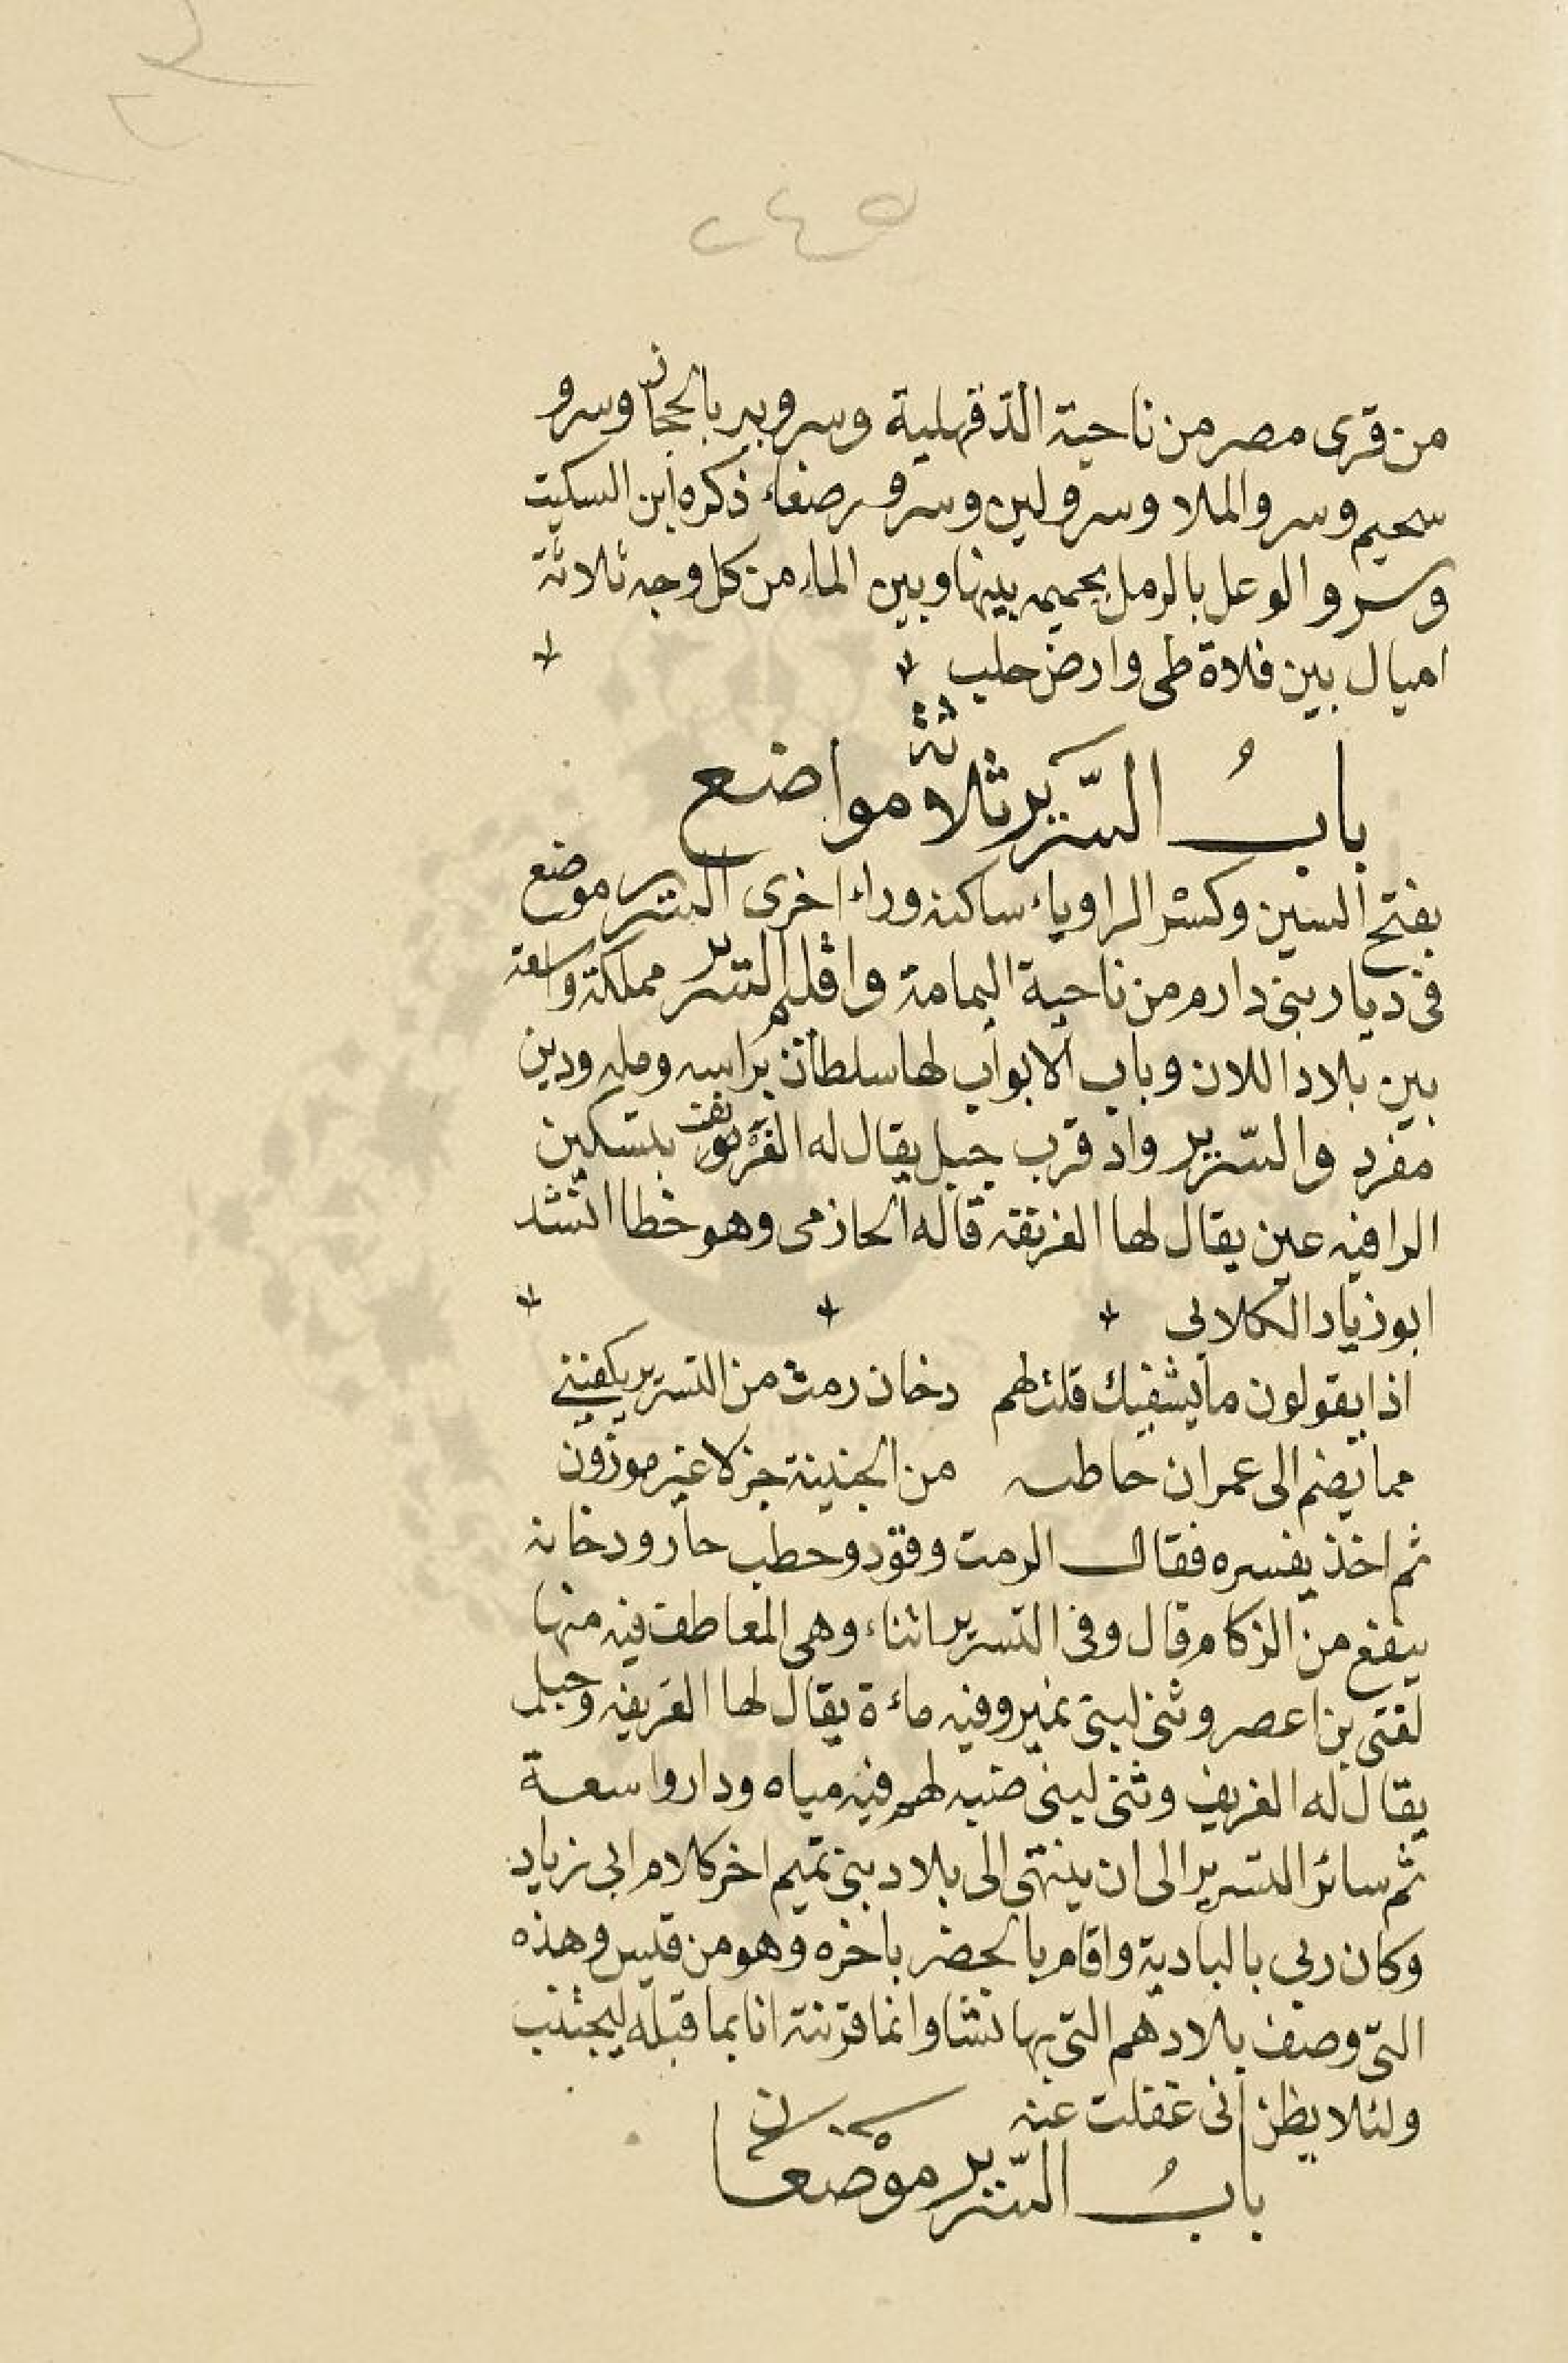 ٢٤٥
من قرى مصر من ناحية الدقهلية وسرو بير بالحجاز وسرو
سحيم وسرو الملا وسرو لبن وسرو رضعاء ذكره ابن السكيت
وسرو الوعل بالرمل بجميه بينها وبين الماء من كل وجه ثلاثة
اميال بين فلاة طى وارض حلب
بابُ السَّرير ثلاثة مواضع
بفتح السين وكسر الراوياء ساكنه وراء اخرى السرير موضع
فى ديار بنى دارم من ناحية اليمامة واقليم السرير مملكة واسعة
بين بلاد اللان وباب الابواب لها سلطان براسه ومله ودين
مفرد والسّرير واد قرب جبل يقال له بتسكين
الرا فيه عين يقال لها الغريقه قاله الحازمى وهو خطا انشد
ابو زياد الكلابى
اذا يقولون ما يشفيك قلت لهم دخان رمث من التسرير يكفينى
مما يضم الى عمران حاطبه من الجنينة جزلا غير موزون
ثم اخذ يفسره فقال الرمث وقود وحطب حار ودخانه
ينفع من الزكام قال وفى التسرير اثناء وهى المعاطف فيه منها
لغنى بن اعصر وثنى لبنى نمير وفيه ماءة يقال لها الغريفه وجبل
يقال له الغريف وثنى لبنى ضبه لهم فيه مياه ودار واسعة
ثم سائر التسرير الى ان ينتهى الى بلاد بنى تميم اخر كلام ابى زياد
وكان ربى بالبادية واقام بالحضر باخره وهو من قيس وهذه
التى وصف بلادهم التى بها نشا وانما قرنته انا بما قبله ليجتنب
ولئلا يظن انى غفلت عنه
بابُ السّرير موضعان